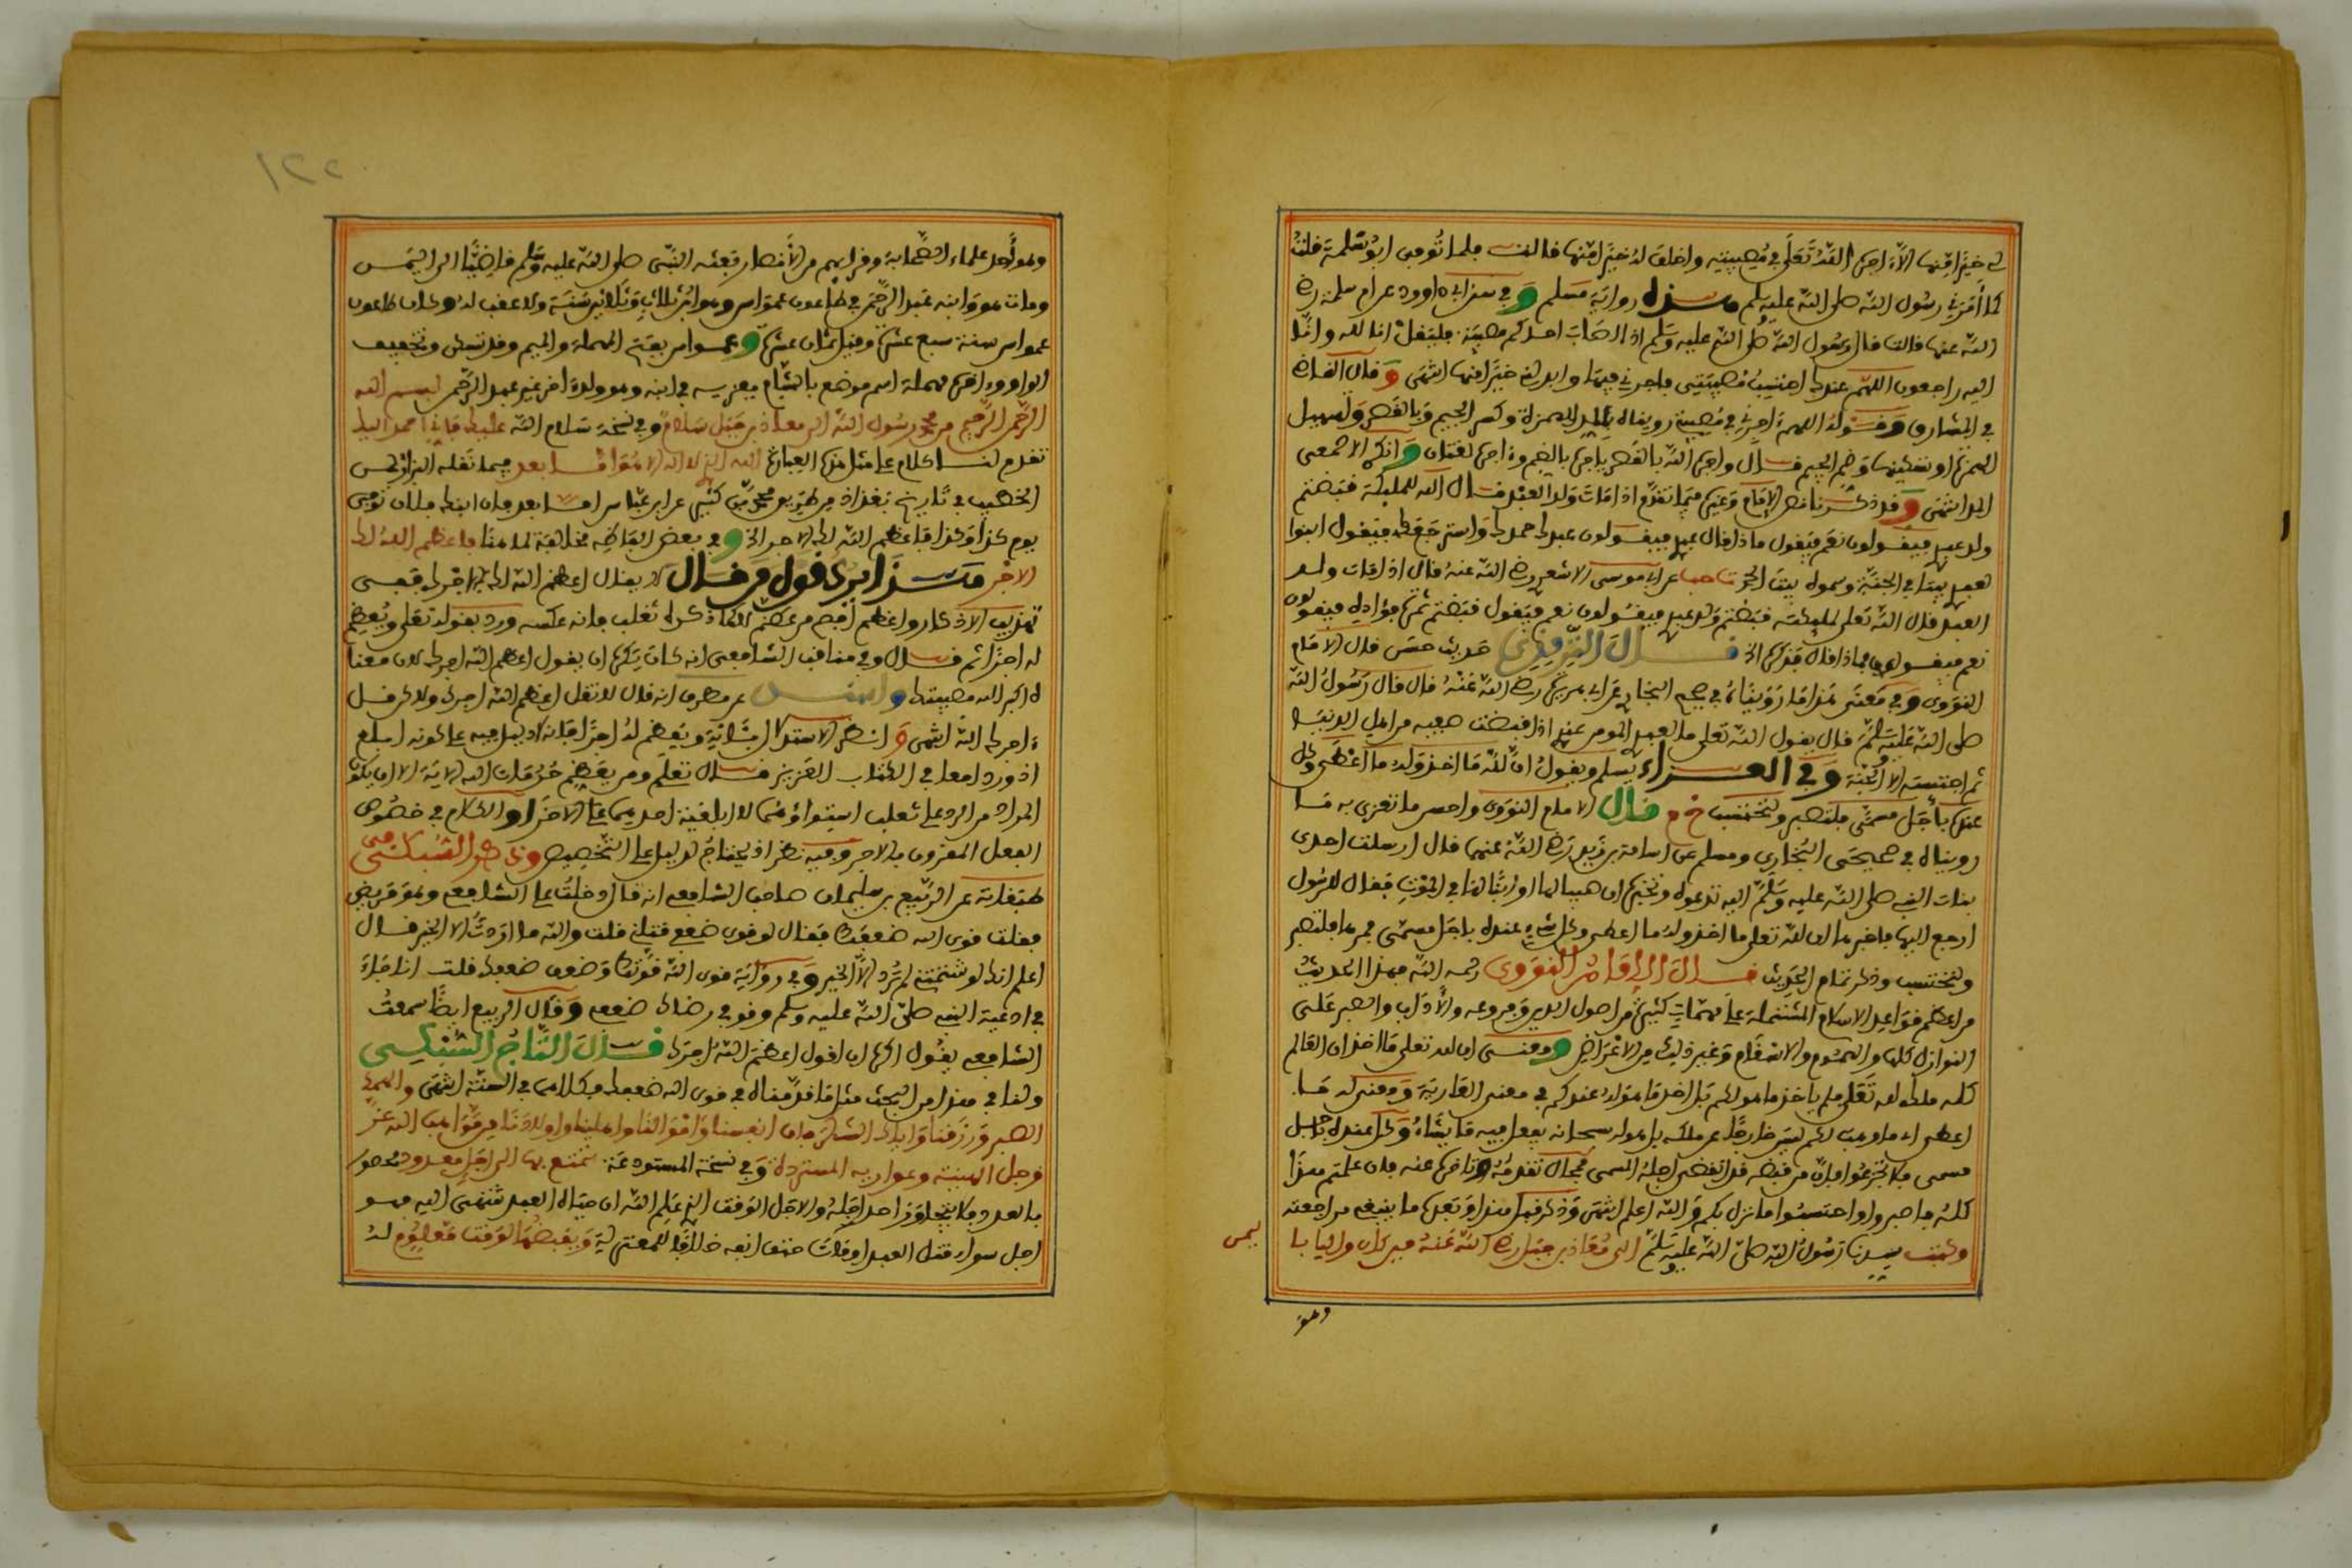 لي خيرا منها الا اجره الله تعلى في مصيبته واخلف له خيرا منها فالت فلما توفى ابو سلمة فلت
كما امرني رسول الله صلى الله عليه وسلم هذه رواية مسلم وفي سنن ابي داوود عن ام سلمة رضي
الله عنها فالت فال رسول الله صلى الله عليه وسلم اذا اصاب احدكم مصيبة فليفل انا لله وانا
اليه راجعون اللهم عندك احتسب مصيبتي فاجرني فيها وابدلني خيرا منها انتهى وفال الفاضي
في المشارق وفوله اللهم اجرني في مصيبتي رويناه بالمد للهمزة وكسر الجيم وبالفصر وتسهيل
الهمزة او تسكينها وضم الجيم فال واجره الله بالفصر ياجره بالضم واجره لغتان وانكر الاصمعي
المد انتهى وفد ذكرنا فبل الامام وغيره مما تفدم اذا مات ولد العبد فال الله للمليكة فبضتم
ولد عبدي فيفولون نعم فيفول ماذا فال عبدي فيفولون عبدك حمدك واسترجعك فيفول ابنوا
لعبدي بيتا في الجنة وسموه بيت الحمد عن ابي موسى الاشعري رضي الله عنه فال اذا مات ولد
العبد فال الله تعلى لمليكته فبضتم ولد عبدي فيفولون نعم فيفول فبضتم ثمرة فؤاده فيفولون
نعم فيفول فماذا فال فذكره الخ فال الترمذي حديث حسن فال الامام
النووي وفي معنى هذا ما رويناه في صحيح البخاري عن ابي هريرة رضي الله عنه فال فال رسول الله
صلى الله عليه وسلم فال يفول الله تعلى ما لعبدي المومن عندي اذا فبضت صفيه من اهل الدنيا
ثم احتسبه الا الجنة وفي العزاء يسلم ويفول ان لله ما اخذ وله ما اعطى وكل
عنده باجل مسمى فلتصبر ولتحتسب خ م فال الامام النووي واحسن ما تعزى به ما
رويناه في صحيحي البخاري ومسلم عن اسامة بن زيد رضي الله عنهما فال ارسلت احدى
بنات النبي صلى الله عليه وسلم اليه تدعوه وتخبره ان صبيا لها او ابنا لها في الموت ففال للرسول
ارجع اليها فاخبرها ان لله تعلى ما اخذ وله ما اعطى وكل شيء عنده باجل مسمى فمرها فلتصبر
ولتحتسب وذكر تمام الحديث فال الامام النووي رحمه الله فهذا الحديث
من اعظم فواعد الاسلام المشتملة على مهمات كثيرة من اصول الدين وفروعه والاداب والصبر على
النوازل كلها والهموم والاسفام وغير ذلك من الاعراض ومعنى ان لله تعلى ما اخذ ان العالم
كله ملك لله تعلى فلم ياخذ ما هو لكم بل اخذ ما هو له عندكم في معنى العارية ومعنى له ما
اعطى ان ما وهب لكم ليس خارجا عن ملكه بل هو له سبحانه يفعل فيه ما يشاء وكل عنده باجل
مسمى فلا تجزعوا فان من فبضه فد انفضى اجله المسمى فمحال تفدمه وتاخره عنه فان علمتم هذا
كله فاصبروا واحتسبوا ما نزل بكم والله اعلم انتهى وذكر فبل هذا وبعده ما ينبغي مراجعته
وكتب سيدنا رسول الله صلى الله عليه وسلم الى معاذ بن جبل رضي الله عنه حين كان واليا با
ليمن
وهو
١٢٢
وهو احد علماء الصحابة وفرايهم من الانصار بعثه النبي صلى الله عليه وسلم فاضيا الى اليمن
ومات هو وابنه عبد الرحمن في طاعون عمواس وهو ابن ثلاث وثلاثين سنة ولا عفب له وكان طاعون
عمواس سنة سبع عشرة وفيل ثمان عشرة وعمواس بفتح المهملة والميم وفد تسكن وتخفيف
الواو واخره مهملة اسم موضع بالشام يعزيه في ابنه وهو ولد اخر غير عبد الرحمن بسم الله
الرحمن الرحيم من محمد رسول الله الى معاذ بن جبل سلام وفي نسخة سلام الله عليك فاني احمد اليك
تفدم لنا كلام على مثل هذه العبارة الله الذي لا اله الا هو اما بعد فيما نفله ابن الجوزي
الخطيب في تاريخ بغداد من طريق محمد بن كثير عن ابن عباس اما بعد فان ابنك فلان توفي
يوم كذا وكذا فاعظم الله لك الاجر الخ وفي بعض الفاظه مخالفة لما هنا فاعظم الله لك
الاجر هذا يرد فول من فال لا يفال اعظم الله لك الاجر ففي
تهذيب الاذكار واعظم افصح من عظم كما ذكره ثعلب فانه عكسه ورد بفوله تعلى ويعظم
له اجرا ثم فال وفي منافب الشافعي انه كان يكره ان يفول اعظم الله اجرك لان معناه
اكبر الله مصيبتك عن مطرف انه فال لا تفل اعظم الله اجرك ولاكن فل
اجرك الله انتهى وانظر الاستدلال بثانية ويعظم له اجرا فانه لا دليل فيه على كونه ابلغ
اذ ورد معا في الكتاب العزيز فال تعلى ومن يعظم حرمات الله الاية الا ان يكون
المراد من الرد على ثعلب استواؤهما لا ابلغية احدهما على الاخر او الكلام في خصوص
الفعل المفرون بالاجر وفيه نظر اذ يحتاج لدليل على التخصيص وذكر السبكي في
طبفاته عن الربيع بن سليمان صاحب الشافعي انه فال دخلت على الشافعي وهو مريض
ففلت فوى الله ضعفك ففال لو فوى ضعفي فتلني فلت والله ما اردت الا الخير فال
اعلم انك لو شتمتني لم ترد الا الخير وفي رواية فوى الله فوتك وضعف ضعفك فلت انا جاء
في ادعية النبي صلى الله عليه وسلم وفو في رضاك ضعفي وفال الربيع ايضا سمعت
الشافعي يفول اكره ان افول اعظم الله اجرك فال التاج السبكي
ولنا في هذا من البحث مثل ما فدمناه في فوى الله ضعفك فكلاهما في السنة انتهى والهمك
الصبر ورزفنا واياك الشكر فان انفسنا واموالنا واهلينا واولادنا من مواهب الله عز
وجل الهنية وعواريه المستردة وفي نسخة المستودعة نمتع بها الى اجل معدود محصور
بالعدد فلا يتجاوز احد اجله والاجل الوفت الذي علم الله ان حياة العبد تنتهي اليه فهو
اجل سواء فتل العبد او مات حتف انفه خلافا للمعتزلة ويفبضها لوفت معلوم له